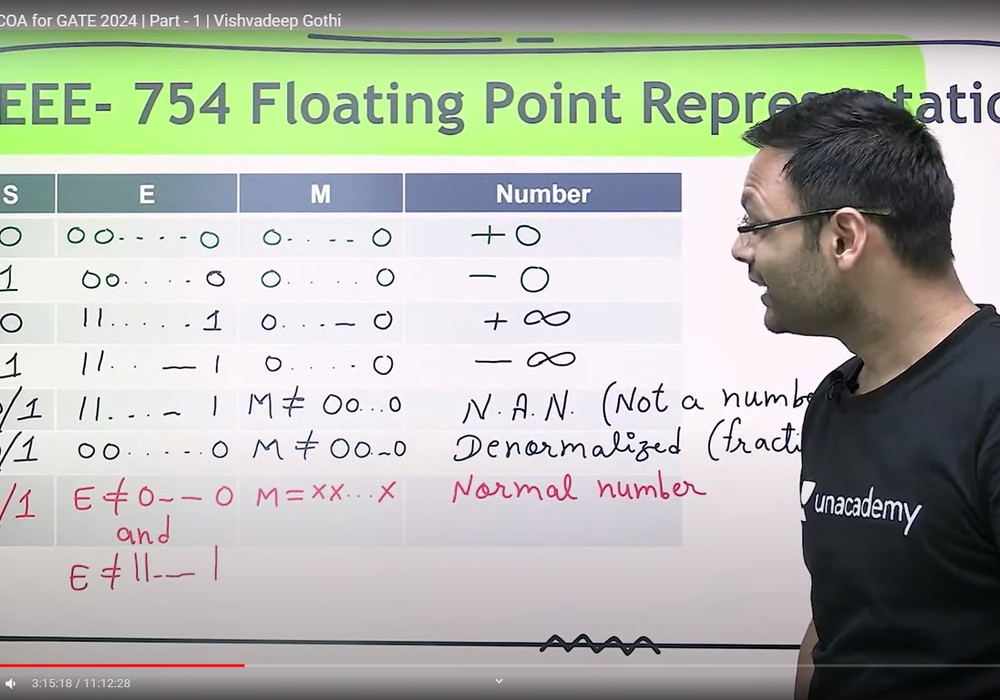 COA for GATE 2024 | Part - 1 | Vishvadeep Gothi
EEE- 754 Floating Point Repre tatio
S E M Number
0 00----0 0...--0 +0
1 00.....0 0.....0 - 0
0 11......1 0...-0 + ∞
1 11..-1 0....0 - ∞
0/1 11...-1 M≠ 00...0 N.A.N. (Not a numbe
0/1 00.....0 M ≠ 00..0 Denormalized (fracti
/1 E≠0--0 M=XX...X Normal number
and
E≠11--1
unacademy
3:15:18 / 11:12:28